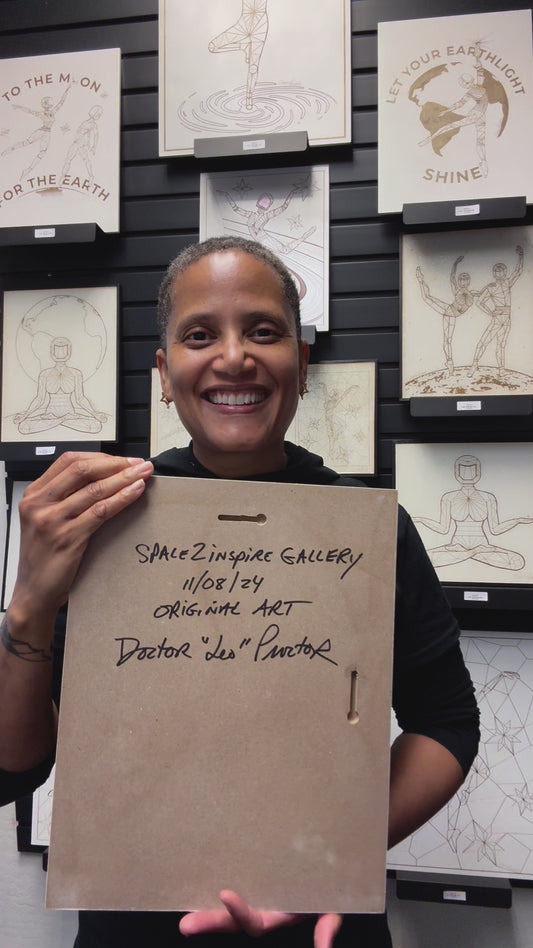 TO THE MOON
FOR THE EARTH
LET YOUR EARTHLIGHT
SHINE
SPACE2inspire GALLERY
11/08/24
ORIGINAL ART
Doctor "Leo" Proctor